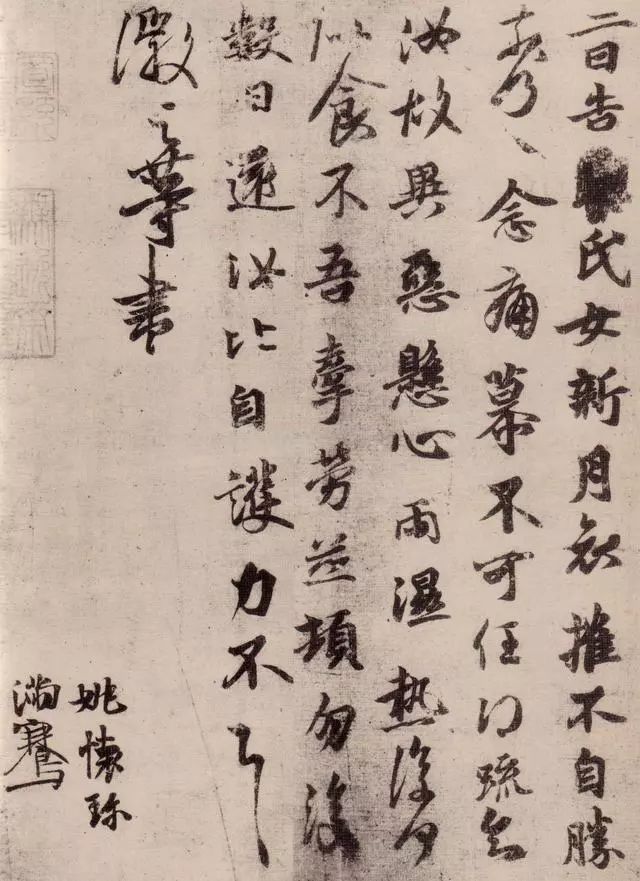 二日告氏女新月哀摧不自勝
奈何〻念痛慕不可任得疏知
汝故異惡懸心雨濕熱復何
似食不吾牽勞並頓勿復
數日還汝比自護力不
徽之等書
姚懷珍
滿騫